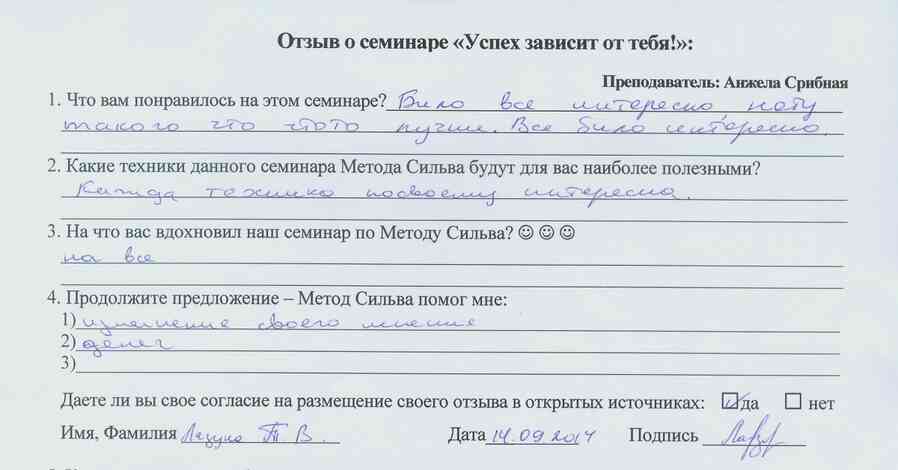 Отзыв о семинаре «Успех зависит от тебя!»:
Преподаватель: Анжела Срибная
1. Что вам понравилось на этом семинаре? Било все интересно нету
такого что чтото лучше. Все било интересно.
2. Какие техники данного семинара Метода Сильва будут для вас наиболее полезными?
Кажда техника посвоему интересна.
3. На что вас вдохновил наш семинар по Методу Сильва? ☺ ☺ ☺
на все
4. Продолжите предложение – Метод Сильва помог мне:
1) изменение своего мнение
2) денег
3)
Даете ли вы свое согласие на размещение своего отзыва в открытых источниках: ☑ да ☐ нет
Имя, Фамилия Т В. Дата 14.09.2014 Подпись